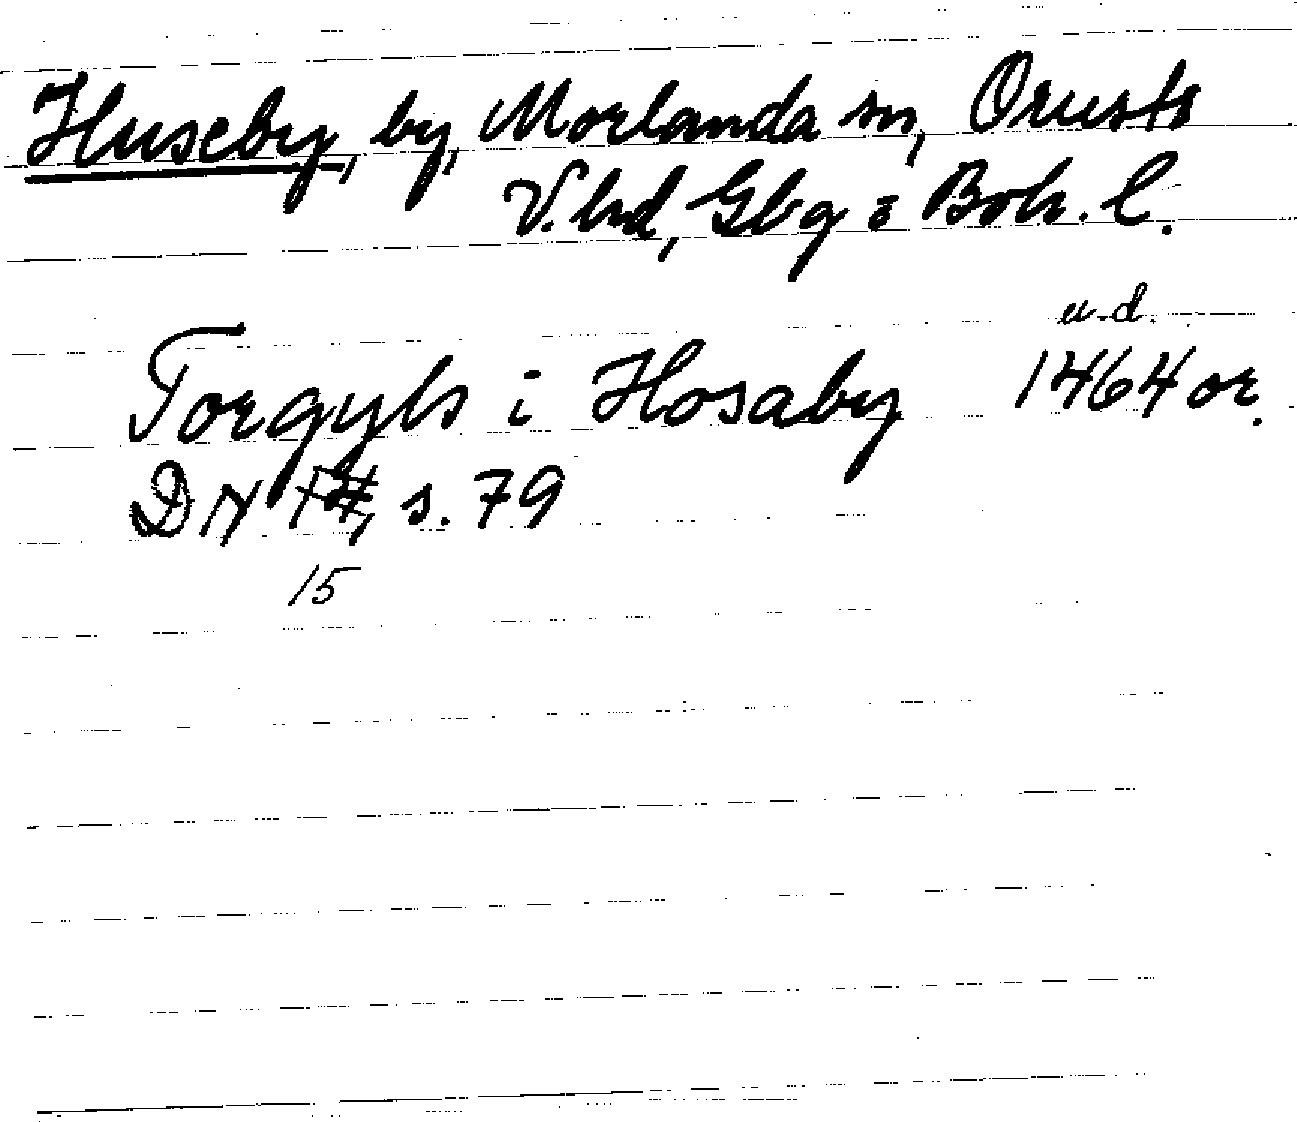 Huseby, by, Morlanda sn, Orusts
V. hd, Gbg o Boh. l.
u.d.
Torgyls i Hosaby 1464 or.
DN , s. 79
15